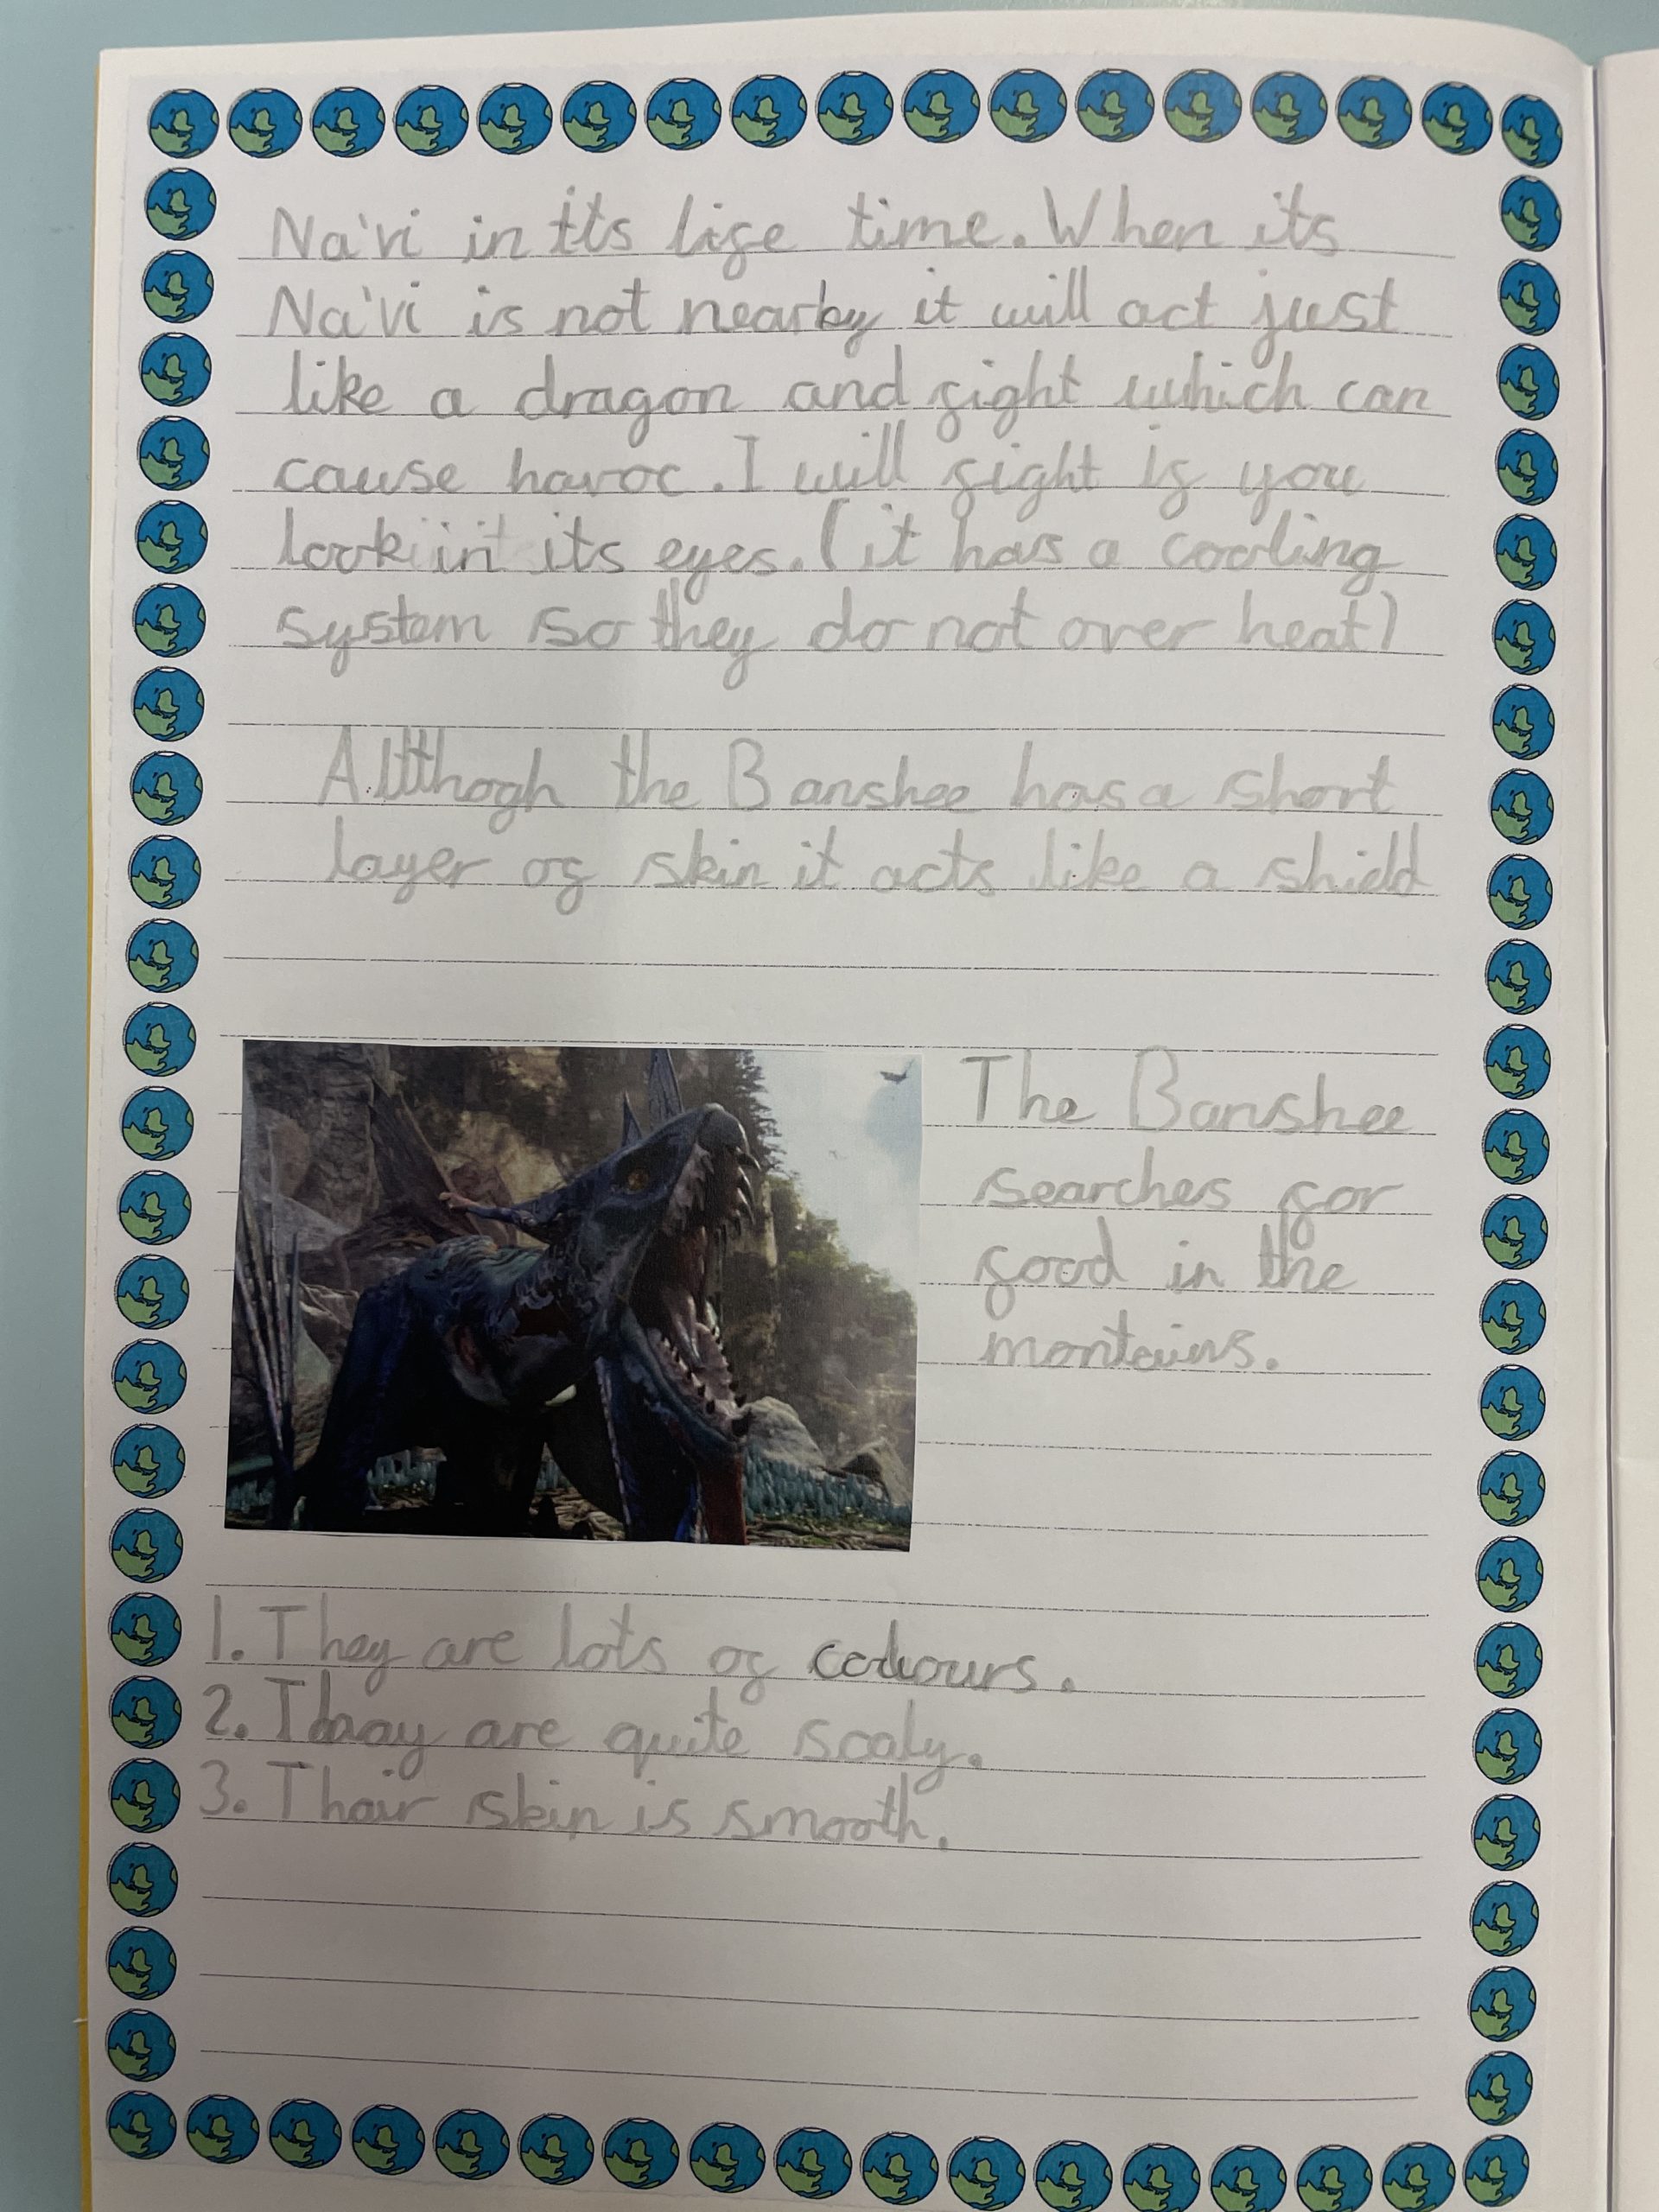 Na'vi in its life time. When its
Na'vi is not nearby it will act just
like a dragon and fight which can
cause havoc. I will fight if you
look in its eyes. (it has a cooling
system so they do not over heat)
Allthogh the Banshee has a short
layer of skin it acts like a shield
The Banshee
searches for
food in the
montains.
1. They are lots of colours.
2. Thay are quite scaly.
3. Thair skin is smooth.